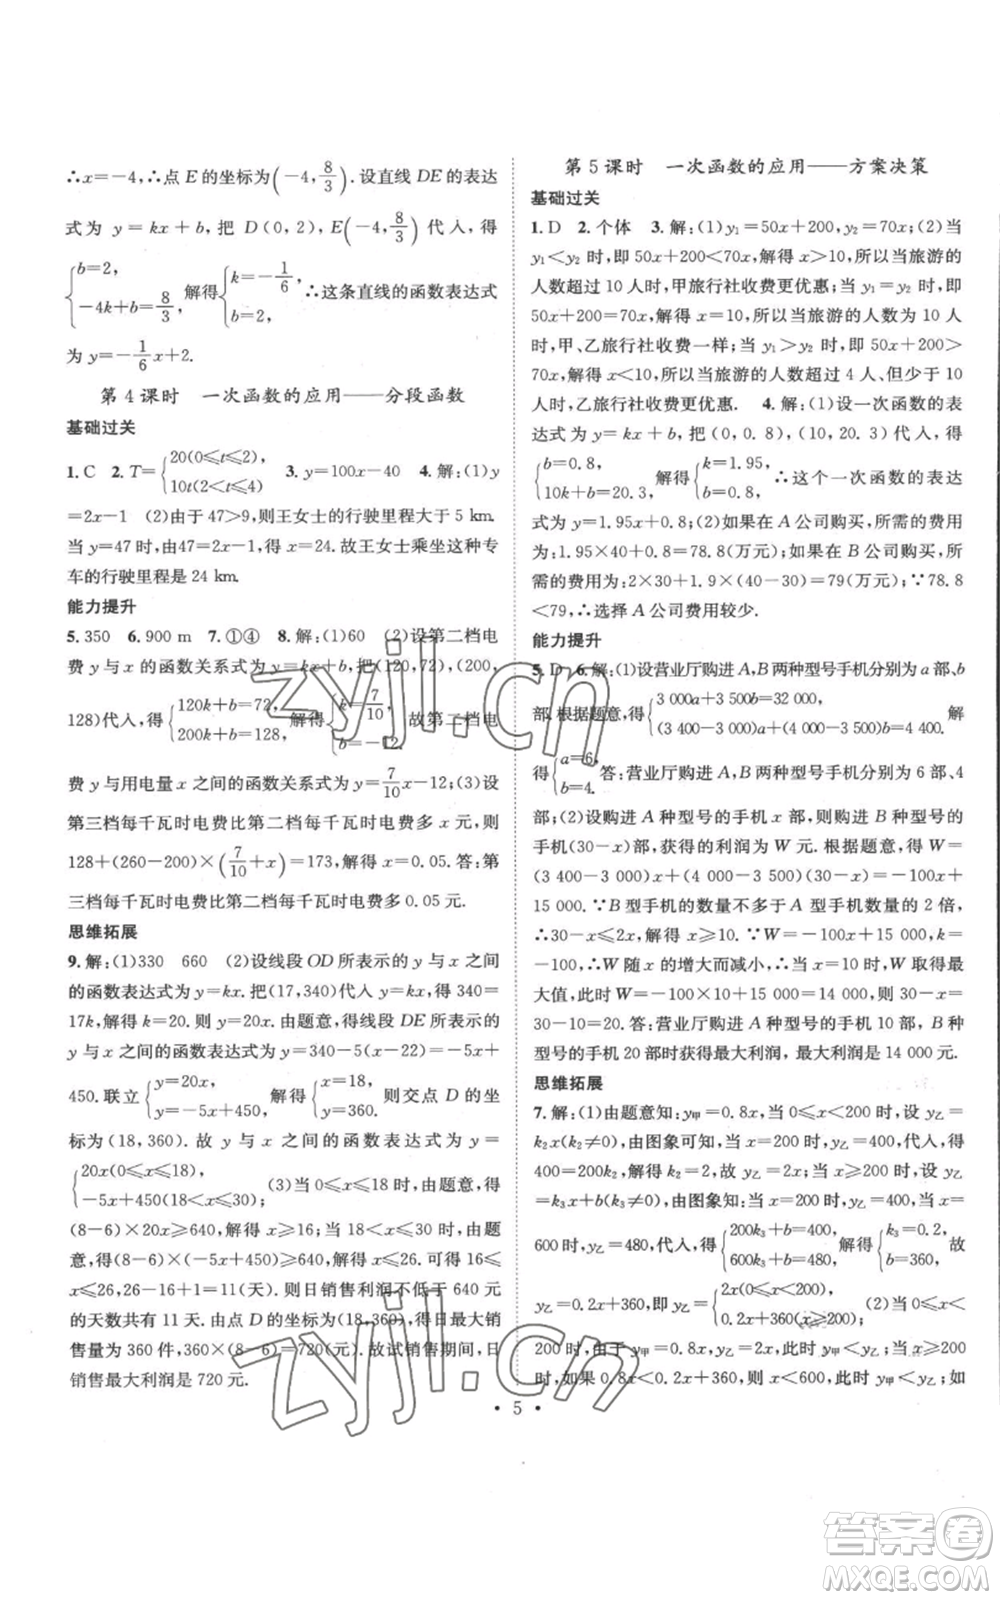 ∴x=-4,∴点 E 的坐标为(-4, 8/3). 设直线 DE 的表达
式为 y=kx+b, 把 D(0,2), E(-4, 8/3)代入, 得
{b=2, -4k+b=8/3, 解得{k=-1/6, b=2, ∴这条直线的函数表达式
为 y=-1/6x+2.
第 4 课时 一次函数的应用——分段函数
基础过关
1. C 2. T={20(0≤t≤2), 10t(2<t≤4) 3. y=100x-40 4. 解:(1)y
=2x-1 (2)由于 47>9,则王女士的行驶里程大于 5 km.
当 y=47 时,由47=2x-1,得 x=24. 故王女士乘坐这种专
车的行驶里程是 24 km.
能力提升
5. 350 6. 900 m 7. ①④ 8. 解:(1)60 (2)设第二档电
费 y 与 x 的函数关系式为 y=kx+b,把(120,72),(200,
128)代入,得{120k+b=72, 200k+b=128, 解得{k=7/10, b=-12. 故第二档电
费 y 与用电量 x 之间的函数关系式为 y=7/10x-12;(3)设
第三档每千瓦时电费比第二档每千瓦时电费多 x 元,则
128+(260-200)×(7/10+x)=173,解得 x=0.05. 答:第
三档每千瓦时电费比第二档每千瓦时电费多 0.05 元.
思维拓展
9. 解:(1)330 660 (2)设线段 OD 所表示的 y 与 x 之间
的函数表达式为 y=kx. 把(17,340)代入 y=kx,得 340=
17k,解得 k=20. 则 y=20x. 由题意,得线段 DE 所表示的
y 与 x 之间的函数表达式为 y=340-5(x-22)=-5x+
450. 联立{y=20x, y=-5x+450, 解得{x=18, y=360. 则交点 D 的坐
标为(18,360). 故 y 与 x 之间的函数表达式为 y=
{20x(0≤x≤18), -5x+450(18<x≤30); (3)当 0≤x≤18 时,由题意,得
(8-6)×20x≥640,解得 x≥16;当 18<x≤30 时,由题
意,得(8-6)×(-5x+450)≥640,解得 x≤26. 可得 16
≤x≤26,26-16+1=11(天). 则日销售利润不低于 640 元
的天数共有 11 天. 由点 D 的坐标为(18,360),得日最大销
售量为 360 件,360×(8-6)=720(元). 故试销售期间,日
销售最大利润是 720 元.
第 5 课时 一次函数的应用——方案决策
基础过关
1. D 2. 个体 3. 解:(1)y₁=50x+200,y₂=70x;(2)当
y₁<y₂ 时,即 50x+200<70x,解得 x>10,所以当旅游的
人数超过 10 人时,甲旅行社收费更优惠;当 y₁=y₂ 时,即
50x+200=70x,解得 x=10,所以当旅游的人数为 10 人
时,甲、乙旅行社收费一样;当 y₁>y₂ 时,即 50x+200>
70x,解得 x<10,所以当旅游的人数超过 4 人且少于 10 人
时,乙旅行社收费更优惠. 4. 解:(1)设一次函数的表
达式为 y=kx+b,把(0,0.8),(10,20.3)代入,得
{b=0.8, 10k+b=20.3, 解得{k=1.95, b=0.8, ∴这个一次函数的表达
式为 y=1.95x+0.8;(2)如果在 A 公司购买,所需的费用
为:1.95×40+0.8=78.8(万元);如果在 B 公司购买,所
需的费用为:2×30+1.9×(40-30)=79(万元);∵78.8
<79,∴选择 A 公司费用较少.
能力提升
5. D 6. 解:(1)设营业厅购进 A,B 两种型号手机分别为 a 部,b
部. 根据题意,得{3 000a+3 500b=32 000, (3 400-3 000)a+(4 000-3 500)b=4 400. 解
得{a=6, b=4. 答:营业厅购进 A,B 两种型号手机分别为 6 部、4
部;(2)设购进 A 种型号的手机 x 部,则购进 B 种型号的
手机(30-x)部,获得的利润为 W 元. 根据题意,得 W=
(3 400-3 000)x+(4 000-3 500)(30-x)=-100x+
15 000. ∵B 型手机的数量不多于 A 型手机数量的 2 倍,
∴30-x≤2x,解得 x≥10. ∵W=-100x+15 000,k=
-100,∴W 随 x 的增大而减小,∴当 x=10 时,W 取得最
大值,此时 W=-100×10+15 000=14 000,则 30-x=
30-10=20. 答:营业厅购进 A 种型号的手机 10 部,B 种
型号的手机 20 部时获得最大利润,最大利润是 14 000 元.
思维拓展
7. 解:(1)由题意知:y甲=0.8x,当 0≤x<200 时,设 y乙=
k₂x(k₂≠0),由图象可知,当 x=200 时,y乙=400,代入得
400=200k₂,解得 k₂=2,故 y乙=2x;当 x≥200 时,设 y乙
=k₃x+b(k₃≠0),由图象知:当 x=200 时,y乙=400,当 x=
600 时,y乙=480,代入,得{200k₃+b=400, 600k₃+b=480, 解得{k₃=0.2, b=360, 故
y乙=0.2x+360,即 y乙={2x(0≤x<200), 0.2x+360(x≥200); (2)当 0≤x<
200 时,由于 y甲=0.8x,y乙=2x,此时 y甲<y乙;当 x≥200
时,如果 0.8x<0.2x+360,解得 x<600,此时 y甲<y乙;如
· 5 ·
zyjl.cn
zyjl.cn
答案圈
MXQE.COM